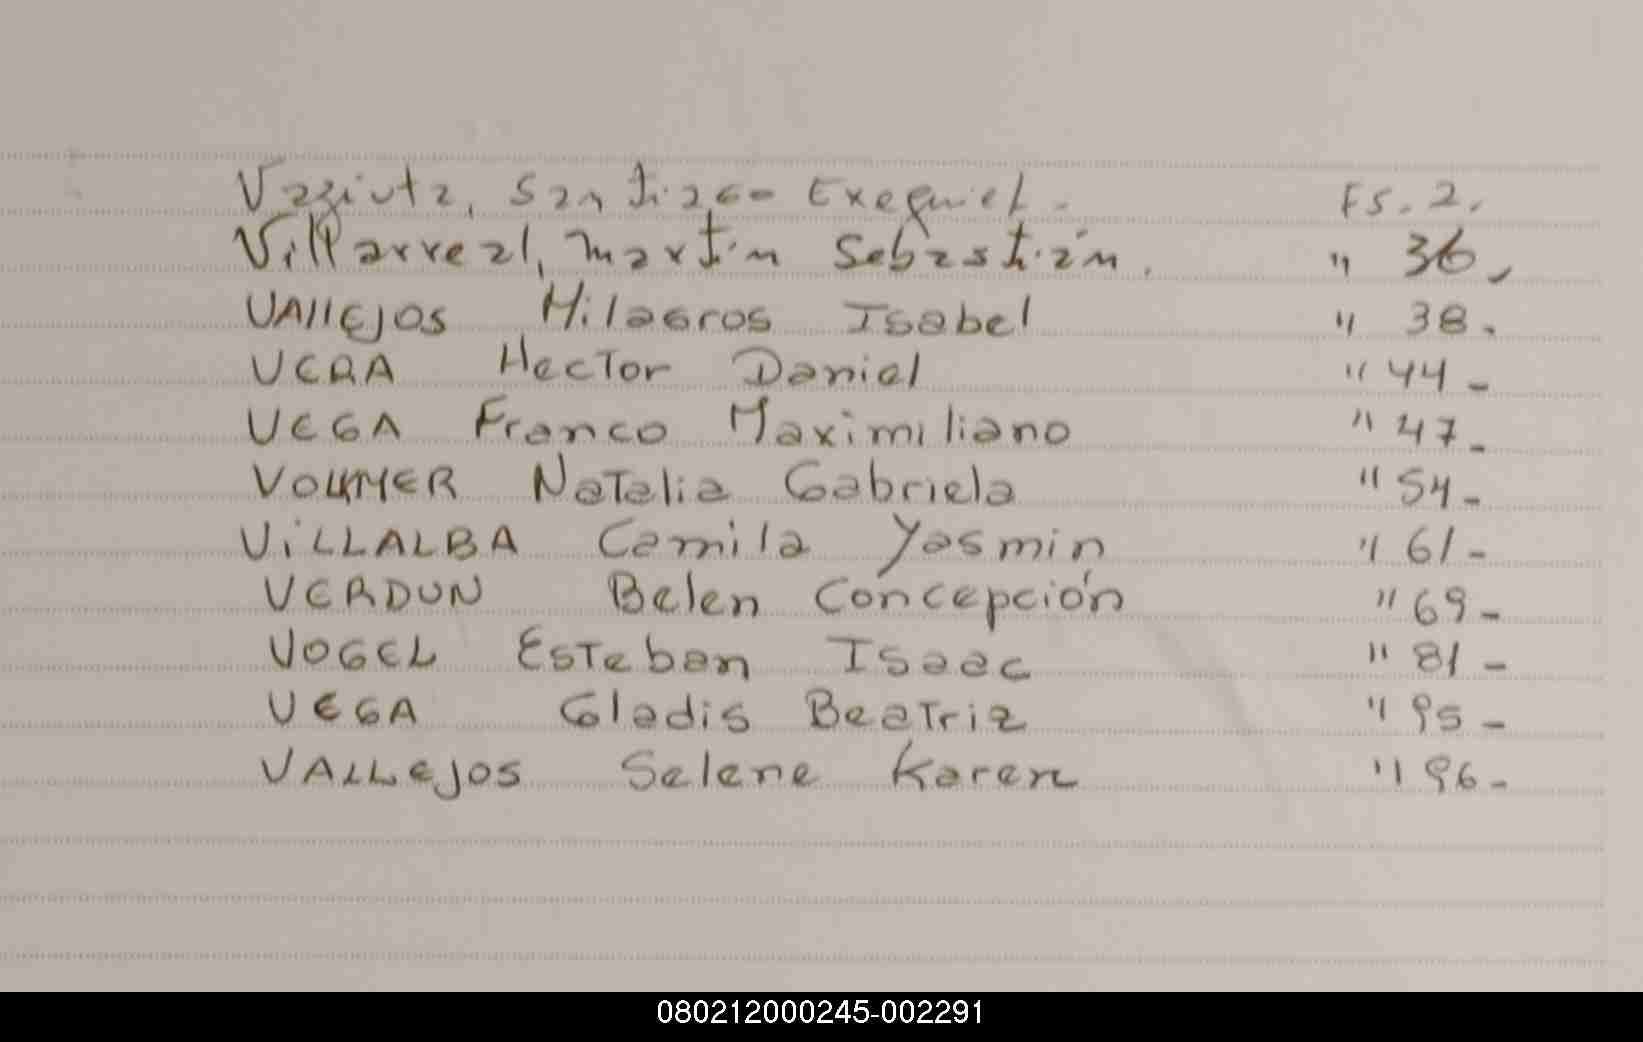 Vaziuta, Santiago Exequiel. Fs. 2.
Villarreal, Martin Sebastián. " 36.
VAllEjOS Milagros Isabel " 38.
VERA Hector Daniel " 44-
VEGA Franco Maximiliano " 47-
VOLLMER Natalia Gabriela " 54-
ViLLALBA Camila Yasmin " 61-
VERDUN Belen Concepción " 69-
VOGEL Esteban Isaac " 81-
VEGA Gladis Beatriz " 95-
VALLEjOS Selene Karen " 96-
080212000245-002291